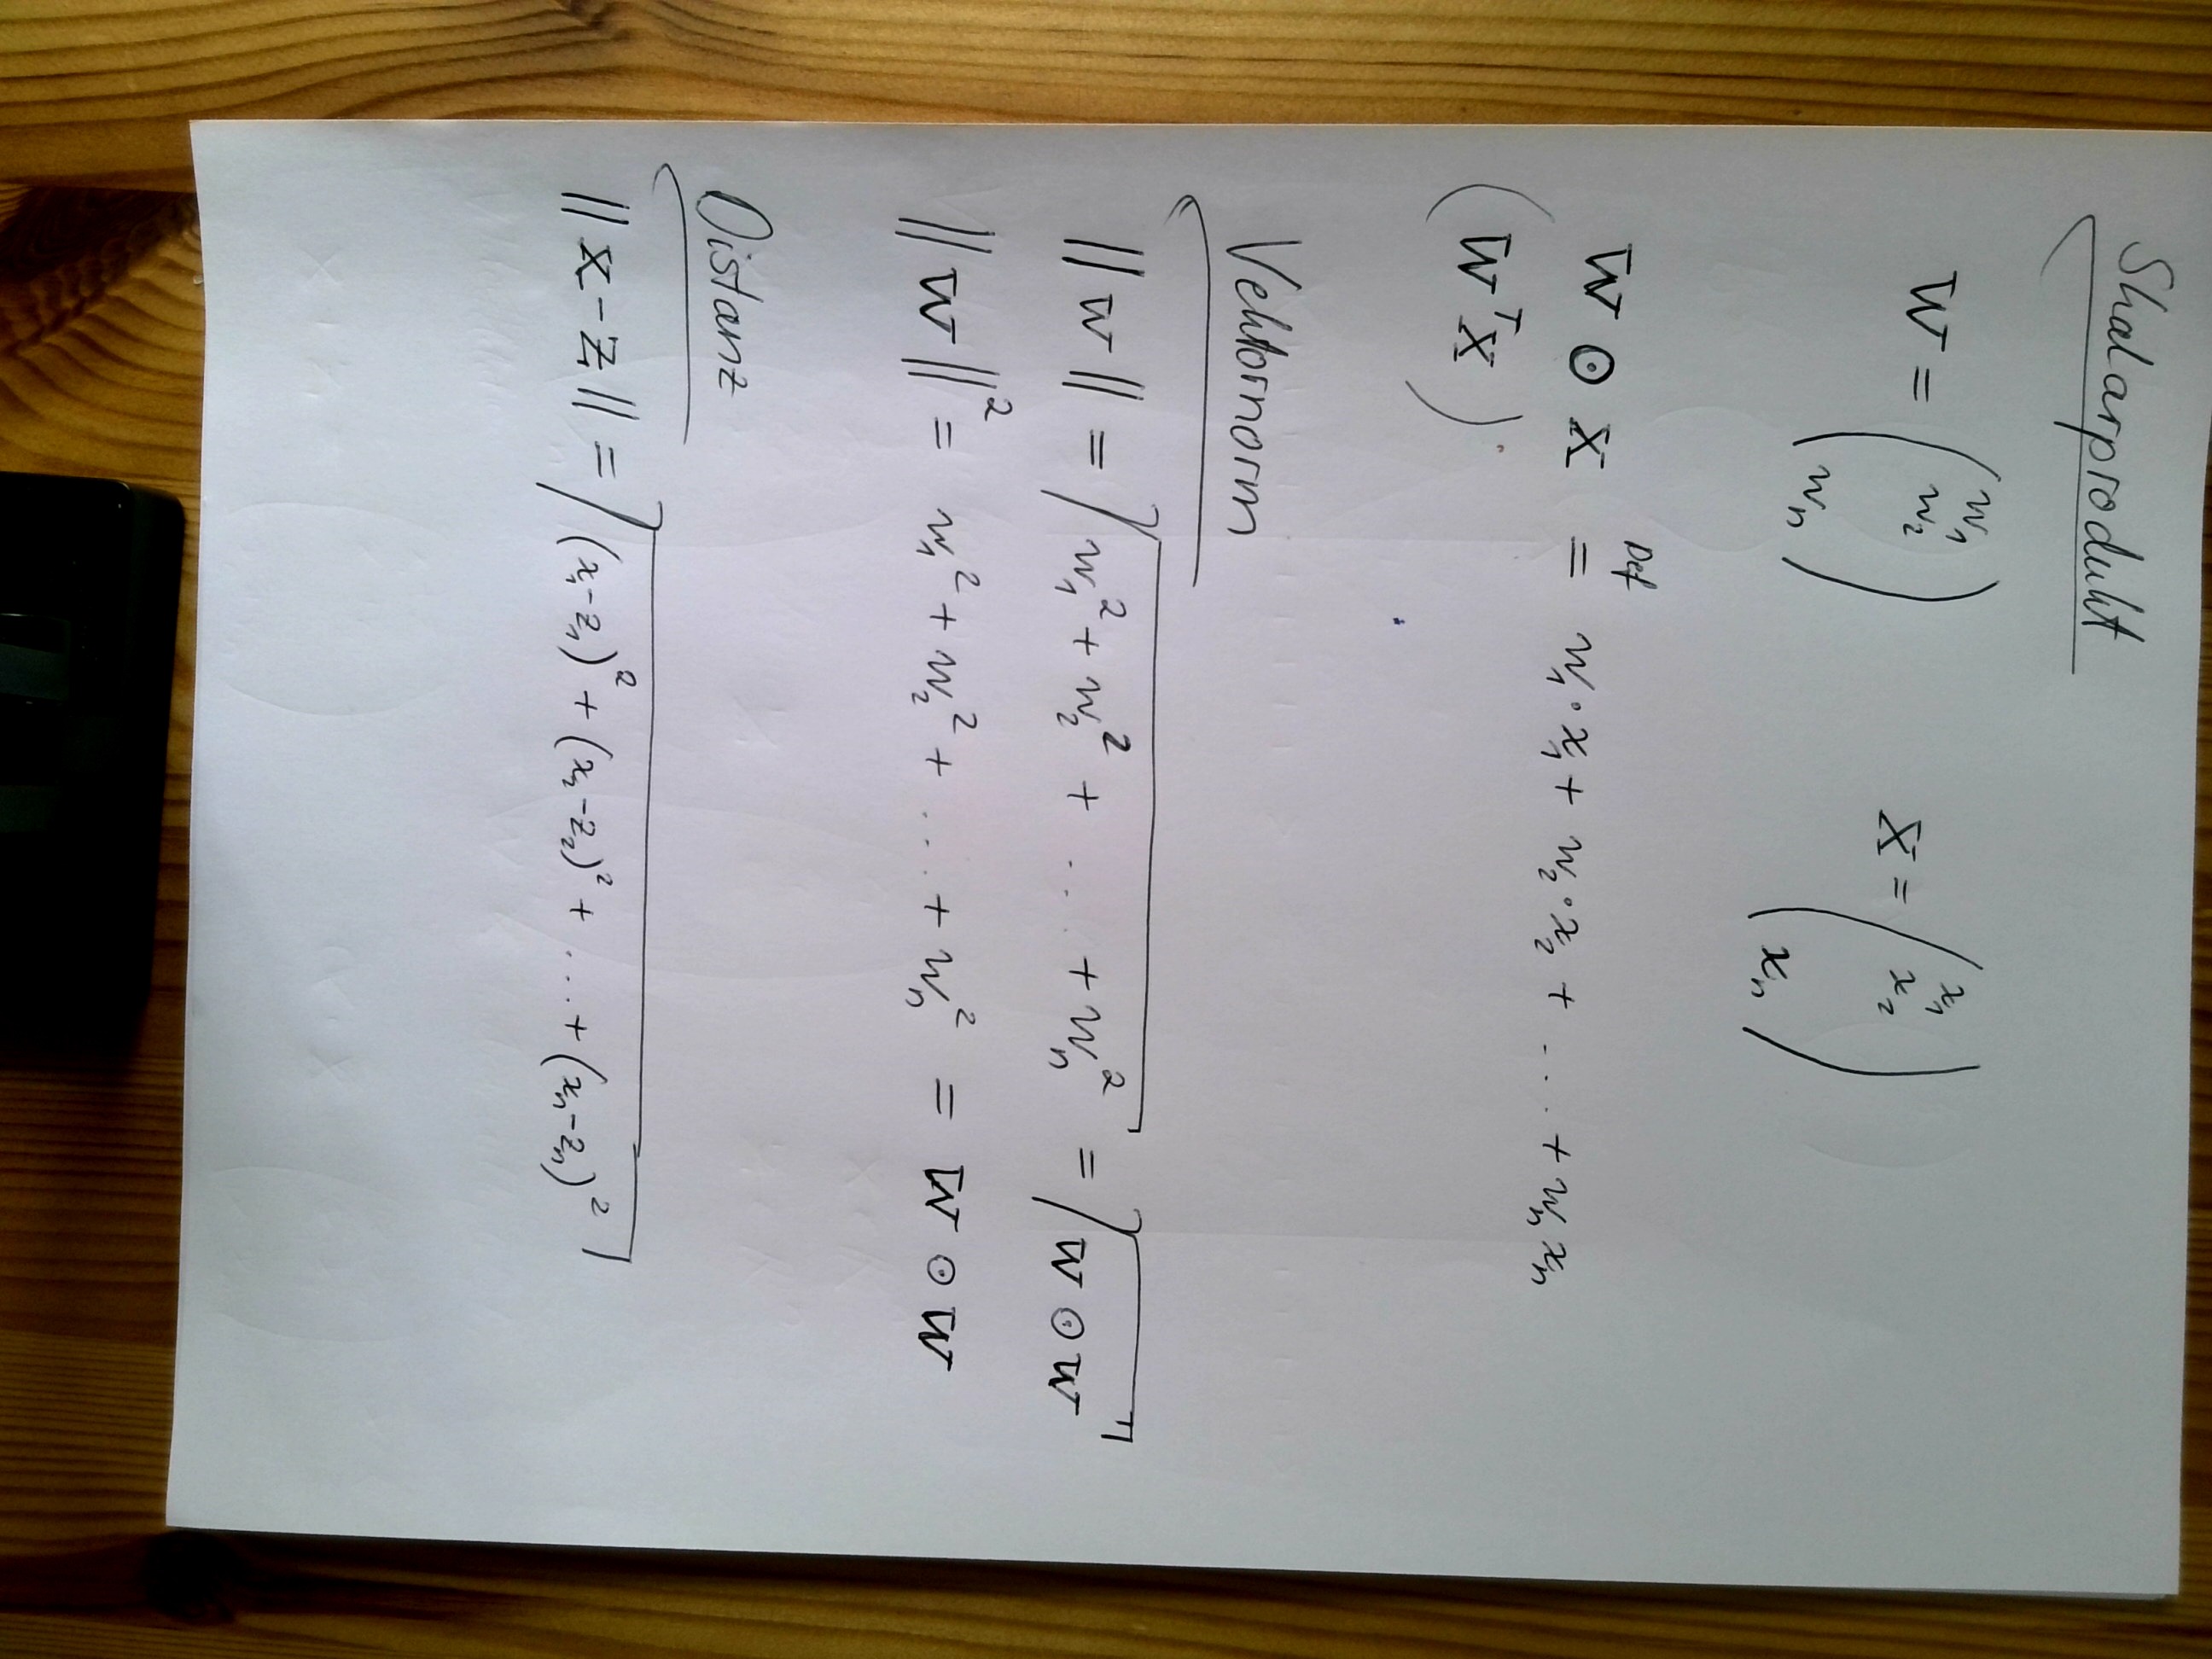 Skalarprodukt
w = ( w₁ w₂ wₙ ) x = ( x₁ x₂ xₙ )
w ⊙ x =Def w₁·x₁ + w₂·x₂ + .... + wₙxₙ
(wᵀx)
Vektornorm
||w|| = √(w₁² + w₂² + .... + wₙ²) = √(w ⊙ w)
||w||² = w₁² + w₂² + .... + wₙ² = w ⊙ w
Distanz
||x - z|| = √((x₁-z₁)² + (x₂-z₂)² + ... + (xₙ-zₙ)²)